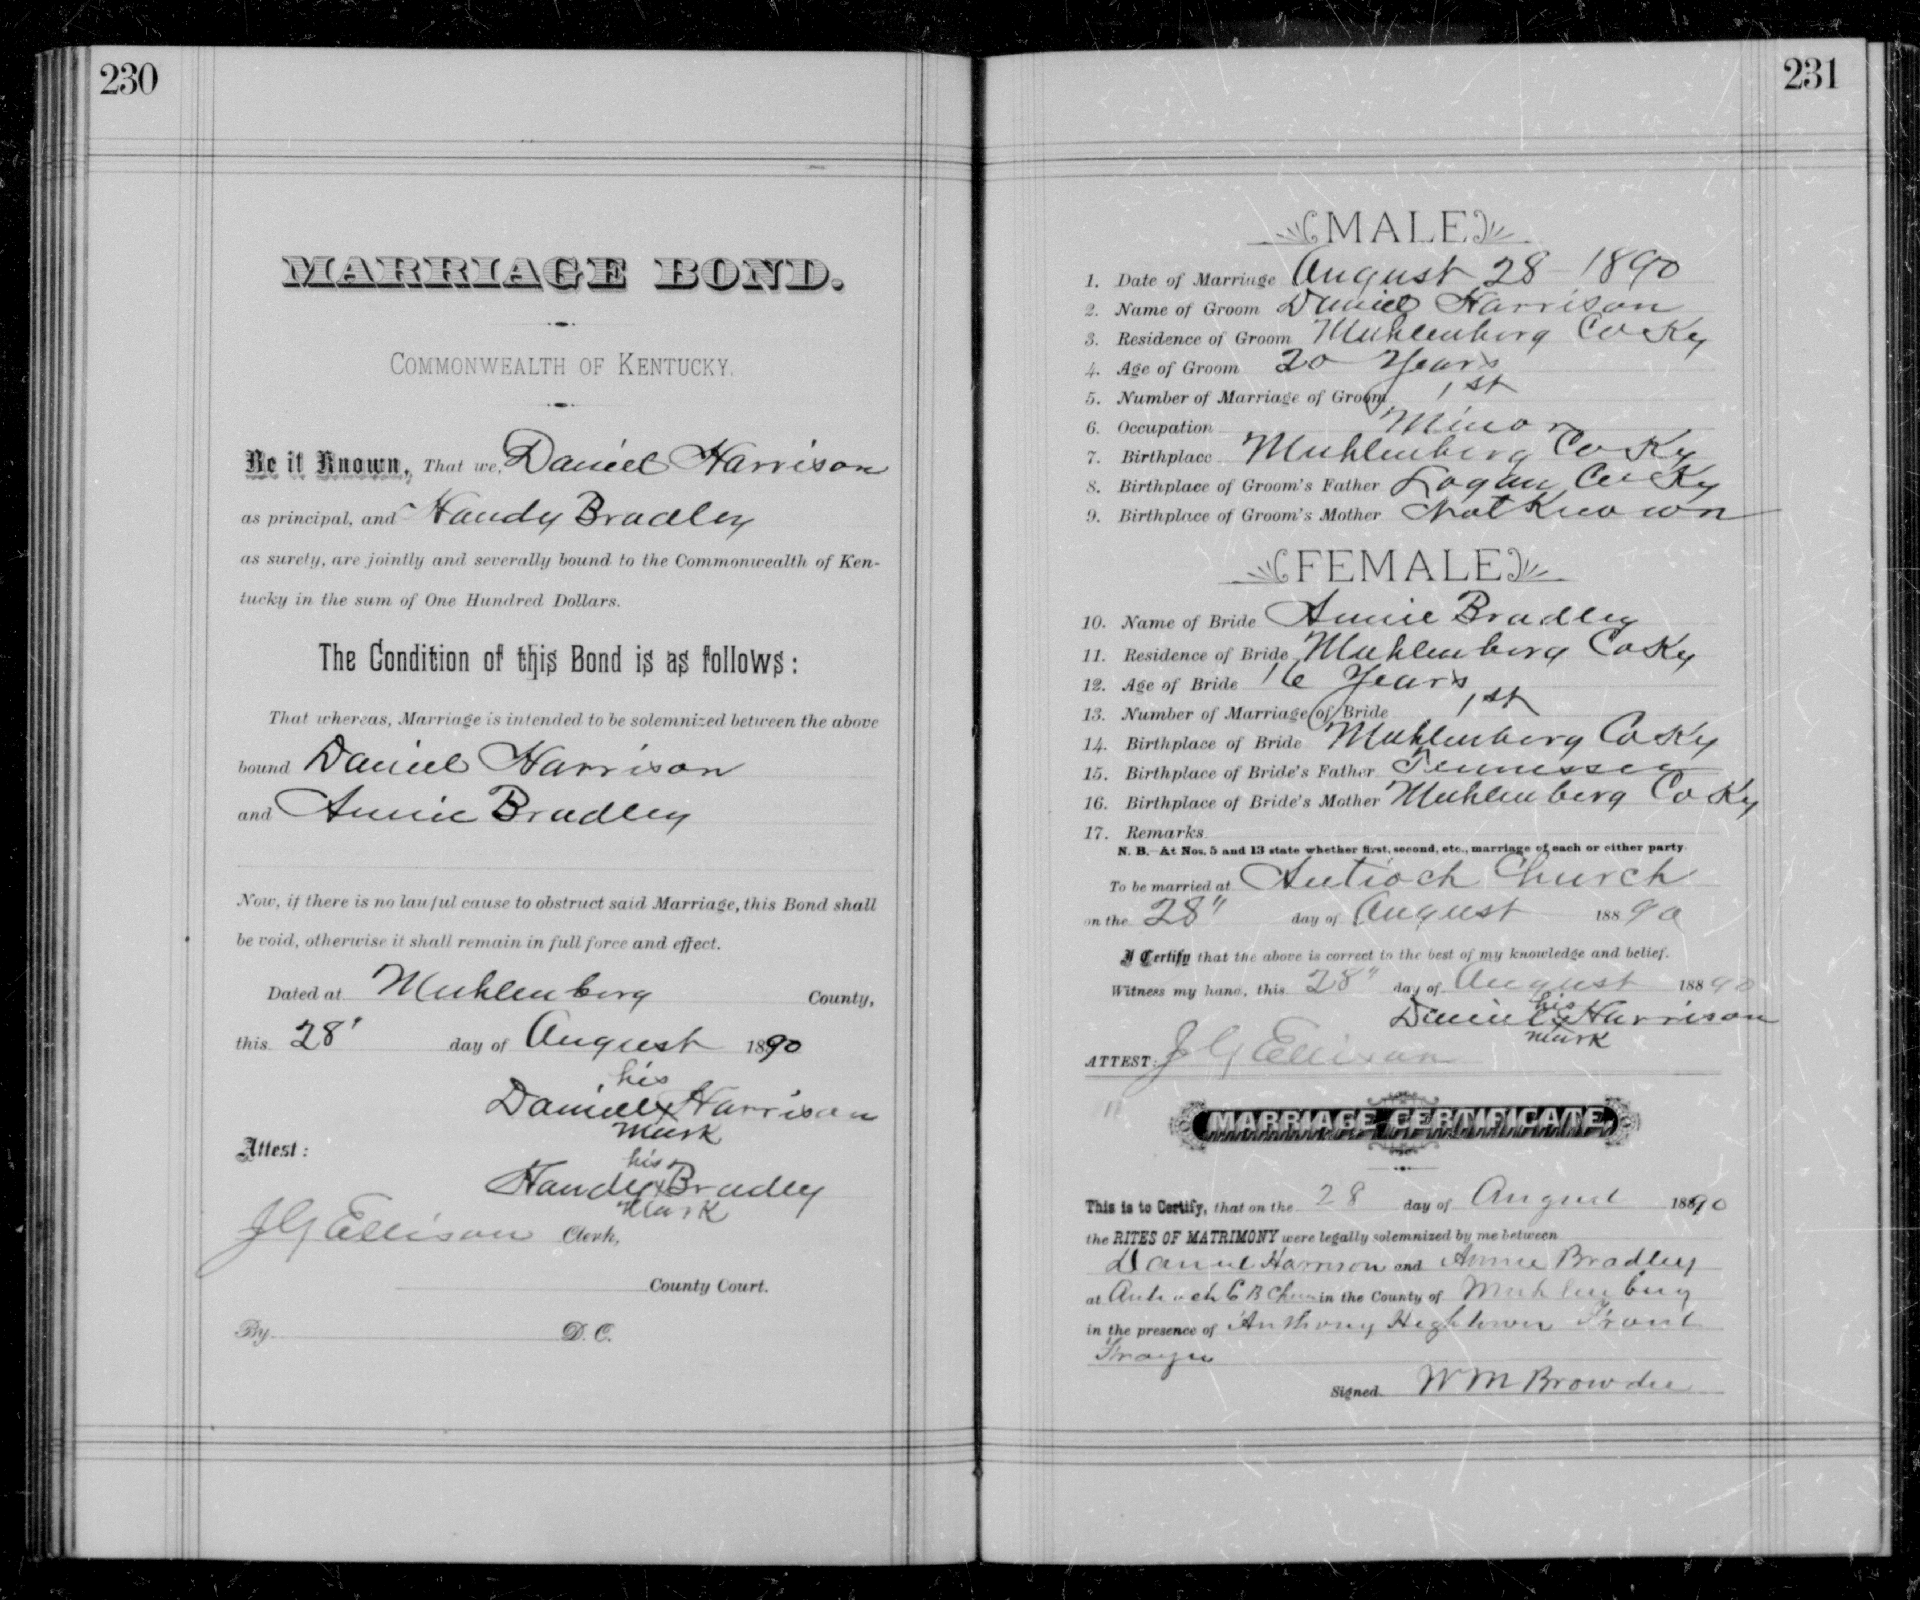 230
MARRIAGE BOND.
COMMONWEALTH OF KENTUCKY.
Be it Known, That we, Daniel Harrison
as principal, and Handy Bradley
as surety, are jointly and severally bound to the Commonwealth of Ken-
tucky in the sum of One Hundred Dollars.
The Condition of this Bond is as follows:
That whereas, Marriage is intended to be solemnized between the above
bound Daniel Harrison
and Annie Bradley
Now, if there is no lawful cause to obstruct said Marriage, this Bond shall
be void, otherwise it shall remain in full force and effect.
Dated at Muhlenberg County,
this 28" day of August 1890
his
Daniel x Harrison
mark
Attest:
his
Handy x Bradley
mark
J G Ellison Clerk,
County Court.
By D. C.
231
MALE
1. Date of Marriage August 28 - 1890
2. Name of Groom Daniel Harrison
3. Residence of Groom Muhlenberg Co Ky
4. Age of Groom 20 Years
5. Number of Marriage of Groom 1st
6. Occupation Minor
7. Birthplace Muhlenberg Co Ky
8. Birthplace of Groom's Father Logan Co Ky
9. Birthplace of Groom's Mother Not Known
FEMALE
10. Name of Bride Annie Bradley
11. Residence of Bride Muhlenberg Co Ky
12. Age of Bride 16 Years
13. Number of Marriage of Bride 1st
14. Birthplace of Bride Muhlenberg Co Ky
15. Birthplace of Bride's Father Tennessee
16. Birthplace of Bride's Mother Muhlenberg Co Ky
17. Remarks
N. B. At Nos. 5 and 13 state whether first, second, etc., marriage of each or either party.
To be married at Antioch Church
on the 28" day of August 188 90
I Certify that the above is correct to the best of my knowledge and belief.
Witness my hand, this 28" day of August 188 90
his
Daniel x Harrison
mark
ATTEST: J G Ellison
MARRIAGE CERTIFICATE.
This is to Certify, that on the 28 day of August 1890
the RITES OF MATRIMONY were legally solemnized by me between
Daniel Harrison and Annie Bradley
at Antioch C B Church in the County of Muhlenberg
in the presence of Anthony Hightower
Signed W M Browder